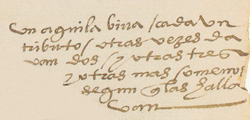 un aguila biva / cada un
tributo / otras vezes da
van dos / y otras tres
y otras mas o menos
segun q̃ las halla
van